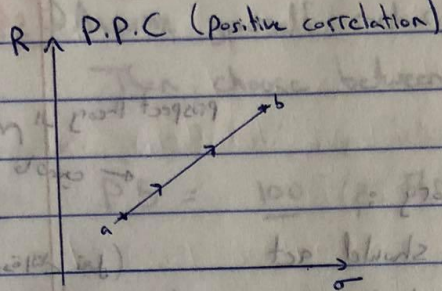 R P.P.C (positive correlation)
b
a
σ